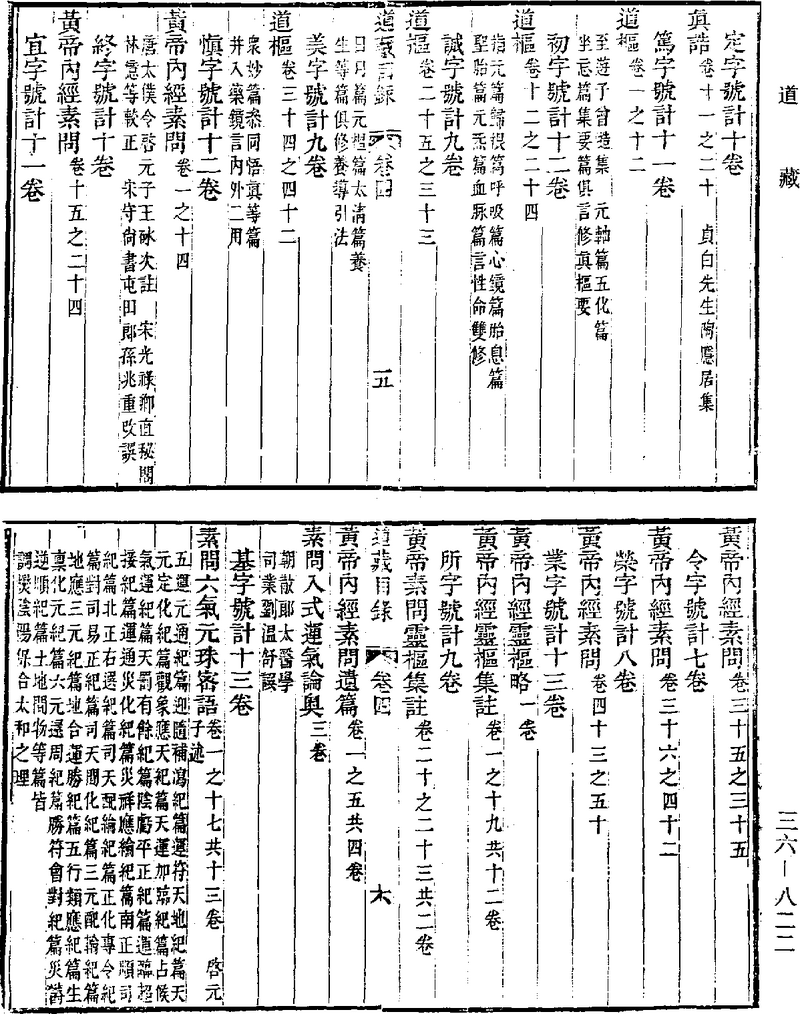 道藏
定字號計十卷
真誥 卷十一之二十 貞白先生陶隱居集
篤字號計十一卷
道樞 卷一之十二
至遊子曾造集 元軸篇五化篇
坐忘篇集要篇俱言修真樞要
初字號計十二卷
道樞 卷十二之二十四
指元篇歸根篇呼吸篇心鏡篇胎息篇
聖胎篇元炁篇血脈篇言性命雙修
誠字號計九卷
道樞 卷二十五之三十三
道藏目錄 卷四 五
日月篇元樞篇太清篇養
生等篇俱修養導引法
美字號計九卷
道樞 卷三十四之四十二
衆妙篇叅同悟真等篇
并入藥鏡言內外二用
慎字號計十二卷
黃帝內經素問 卷一之十四
唐太僕令啓元子王砅次註 宋光祿卿直秘閣
林億等校正 宋守尙書屯田郎孫兆重改誤
終字號計十卷
黃帝內經素問 卷十五之二十四
宜字號計十一卷
黃帝內經素問 卷二十五之三十五
令字號計七卷
黃帝內經素問 卷三十六之四十二
榮字號計八卷
黃帝內經素問 卷四十三之五十
業字號計十三卷
黃帝內經靈樞略 一卷
黃帝內經靈樞集註 卷一之十九共十二卷
所字號計九卷
黃帝素問靈樞集註 卷二十之二十三共二卷
道藏目錄 卷四 六
黃帝內經素問遺篇 卷一之五共四卷
素問入式運氣論奧 三卷
朝散郎太醫學
司業劉溫舒誤
基字號計十三卷
素問六氣元珠密語 卷一之十七共十三卷 啓元
子述
五運元通紀篇迎隨補瀉紀篇運符天地紀篇天
元定化紀篇觀象應天紀篇天運加臨紀篇占候
氣運紀篇天罰有餘紀篇陰虧平正紀篇運臨超
接紀篇運通災化紀篇災祥應繪紀篇南正順司
紀篇北正右遷紀篇司天配輪紀篇正化專令紀
篇對司易正紀篇司天間化紀篇三元配輪紀篇
地應三元紀篇地合運勝紀篇五行類應紀篇生
稟化元紀篇六元還周紀篇勝符會對紀篇災鬱
逆順紀篇土地間物等篇皆
調爕陰陽保合太和之理
三六—八二二